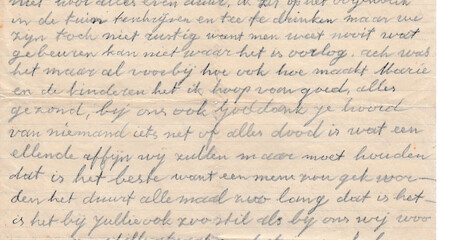 niet voor alles even duur, ik zit op het oogenblik
in de tuin te schrijven en tee te drinken maar we
zijn toch niet rustig want men weet nooit wat
gebeuren kan niet waar het is oorlog, ach was
het maar al voorbij hoe ook hoe maakt Marie
en de kinderen het ik hoop van goed, alles
gezond, bij ons ook Goddank je hoord
van niemand iets net of alles dood is wat een
ellende affijn wij zullen maar moet houden
dat is het beste want een mens zou gek wor-
den het duurt allemaal zoo lang dat is het-
is het bij jullie ook zoo stil als bij ons wij woo